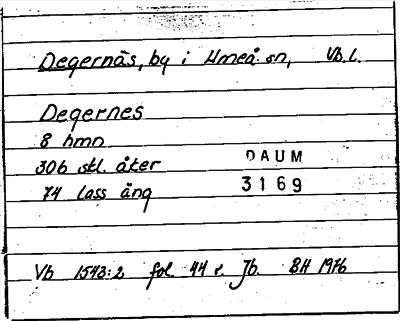 Degernäs, by i Umeå sn, Vb.l.
Degernes
8 hmn
306 skl. åker
74 lass äng
DAUM
3169
Vb 1543:2 fol. 44 r. Jb. BH 1976